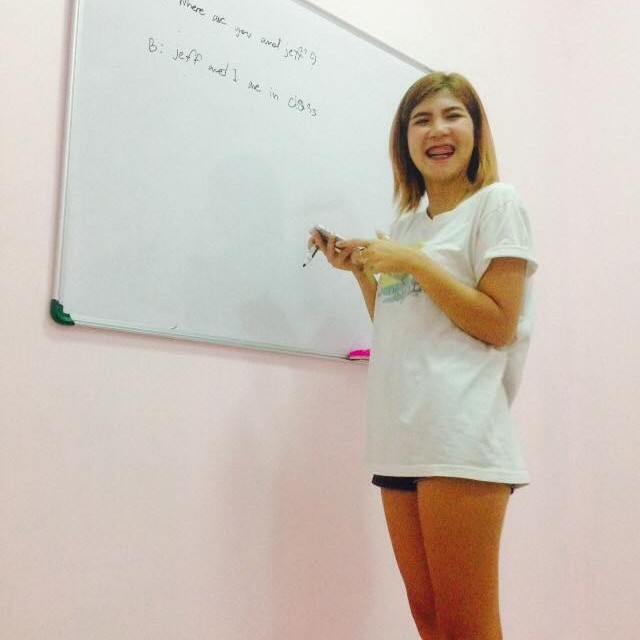 Where are you and jeff?
B: jeff and I are in class